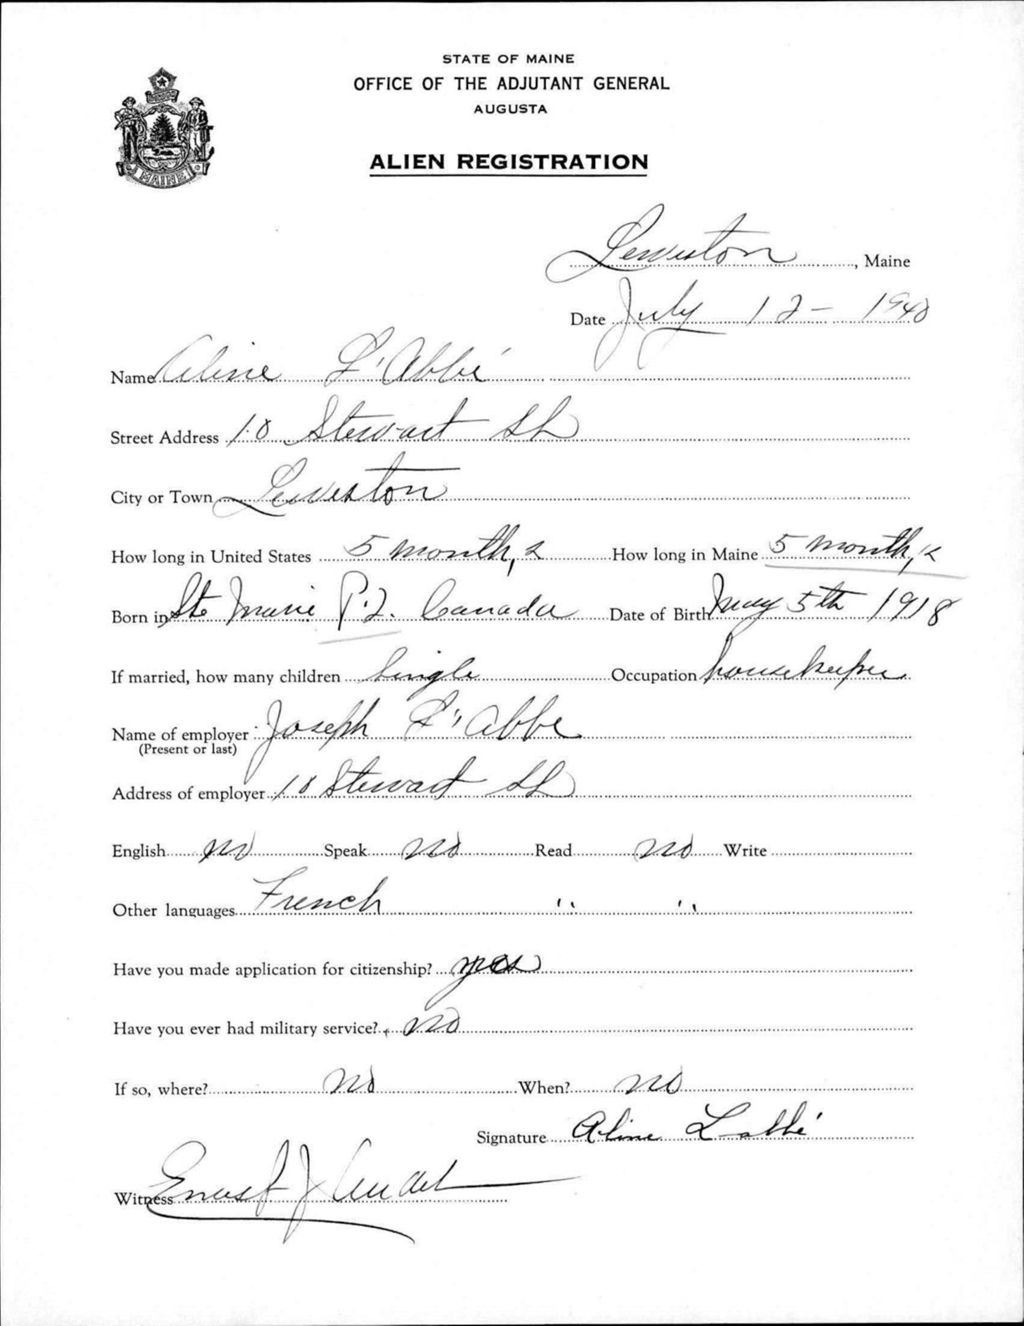 STATE OF MAINE
OFFICE OF THE ADJUTANT GENERAL
AUGUSTA
MAINE
ALIEN REGISTRATION
Lewiston, Maine
Date July 12 - 1940
Name Aline L'Abbé
Street Address 10 Stewart St
City or Town Lewiston
How long in United States 5 months How long in Maine 5 months
Born in Ste Marie P.2. Canada Date of Birth May 5th 1918
If married, how many children Single Occupation housekeeper
Name of employer Joseph L'Abbe
(Present or last)
Address of employer 10 Stewart St
English no Speak no Read no Write
Other languages French " "
Have you made application for citizenship? yes
Have you ever had military service? no
If so, where? no When? no
Signature Aline Labbé
Witness Ernest J